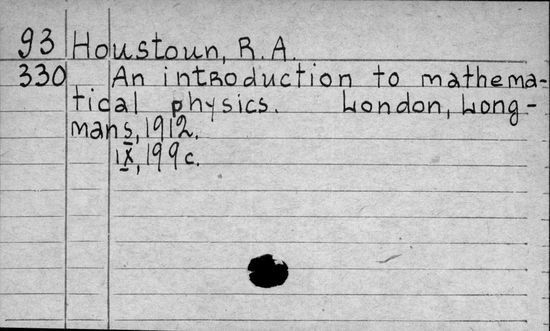 93 Houstoun, R.A.
330 An introduction to mathema-
tical physics. London, Long-
mans, 1912.
IX, 199 c.